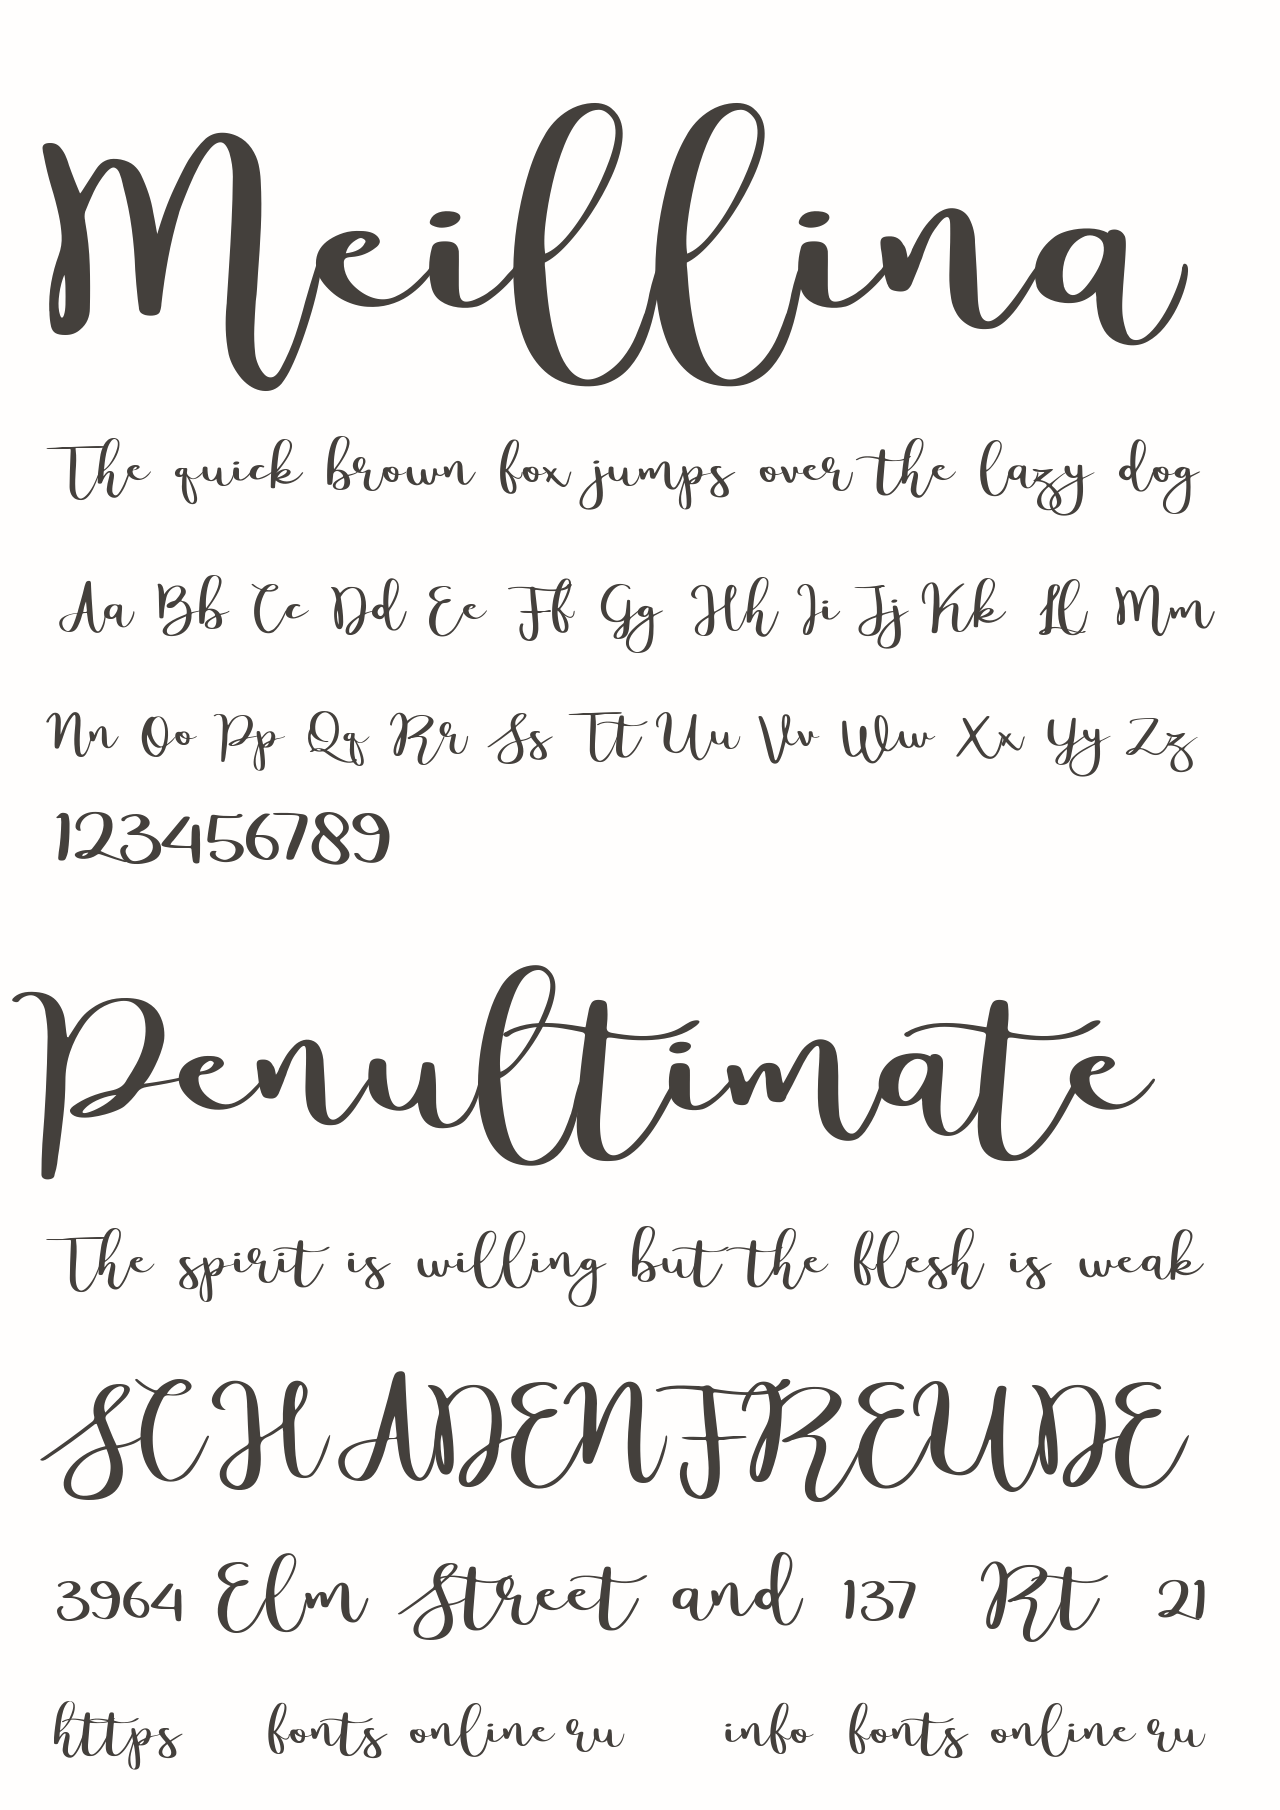 Meillina
The quick brown fox jumps over the lazy dog
Aa Bb Cc Dd Ee Ff Gg Hh Ii Jj Kk Ll Mm
Nn Oo Pp Qq Rr Ss Tt Uu Vv Ww Xx Yy Zz
123456789
Penultimate
The spirit is willing but the flesh is weak
SCHADENFREUDE
3964 Elm Street and 137 Rt 21
https fonts online ru info fonts online ru